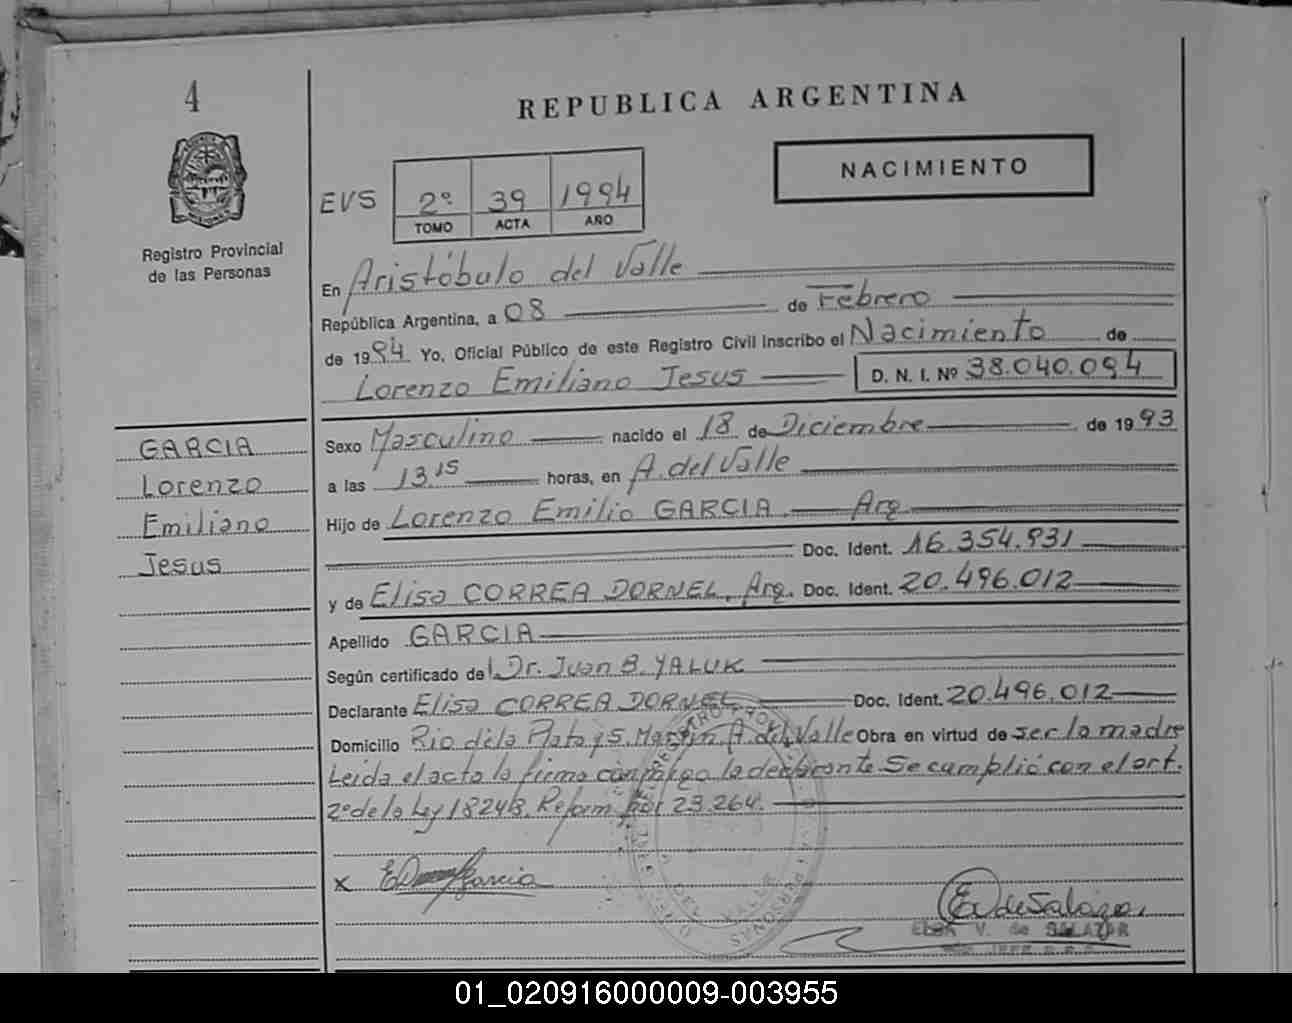 4
REPUBLICA ARGENTINA
NACIMIENTO
Registro Provincial
de las Personas
EVS 2º 39 1994
TOMO ACTA AÑO
En Aristóbulo del Valle
República Argentina, a 08 de Febrero
de 1994 Yo, Oficial Público de este Registro Civil Inscribo el Nacimiento de
Lorenzo Emiliano Jesus D. N. I. Nº 38.040.094
GARCIA
Lorenzo
Emiliano
Jesus
Sexo Masculino nacido el 18 de Diciembre de 1993
a las 13.15 horas, en A. del Valle
Hijo de Lorenzo Emilio GARCIA Arg
Doc. Ident. 16.354.931
y de Elisa CORREA DORNEL, Arg. Doc. Ident. 20.496.012
Apellido GARCIA
Según certificado del Dr. Juan B. YALUK
Declarante Elisa CORREA DORNEL Doc. Ident. 20.496.012
Domicilio Rio de la Plata y S. Martin A. del Valle Obra en virtud de ser la madre
Leida el acta la firma conmigo la declarante. Se cumplió con el art.
2º de la Ley 18248. Reform por 23.264.
x Garcia
E V de Salazar
ELSA V. de SALAZAR
JEFE
01_020916000009-003955